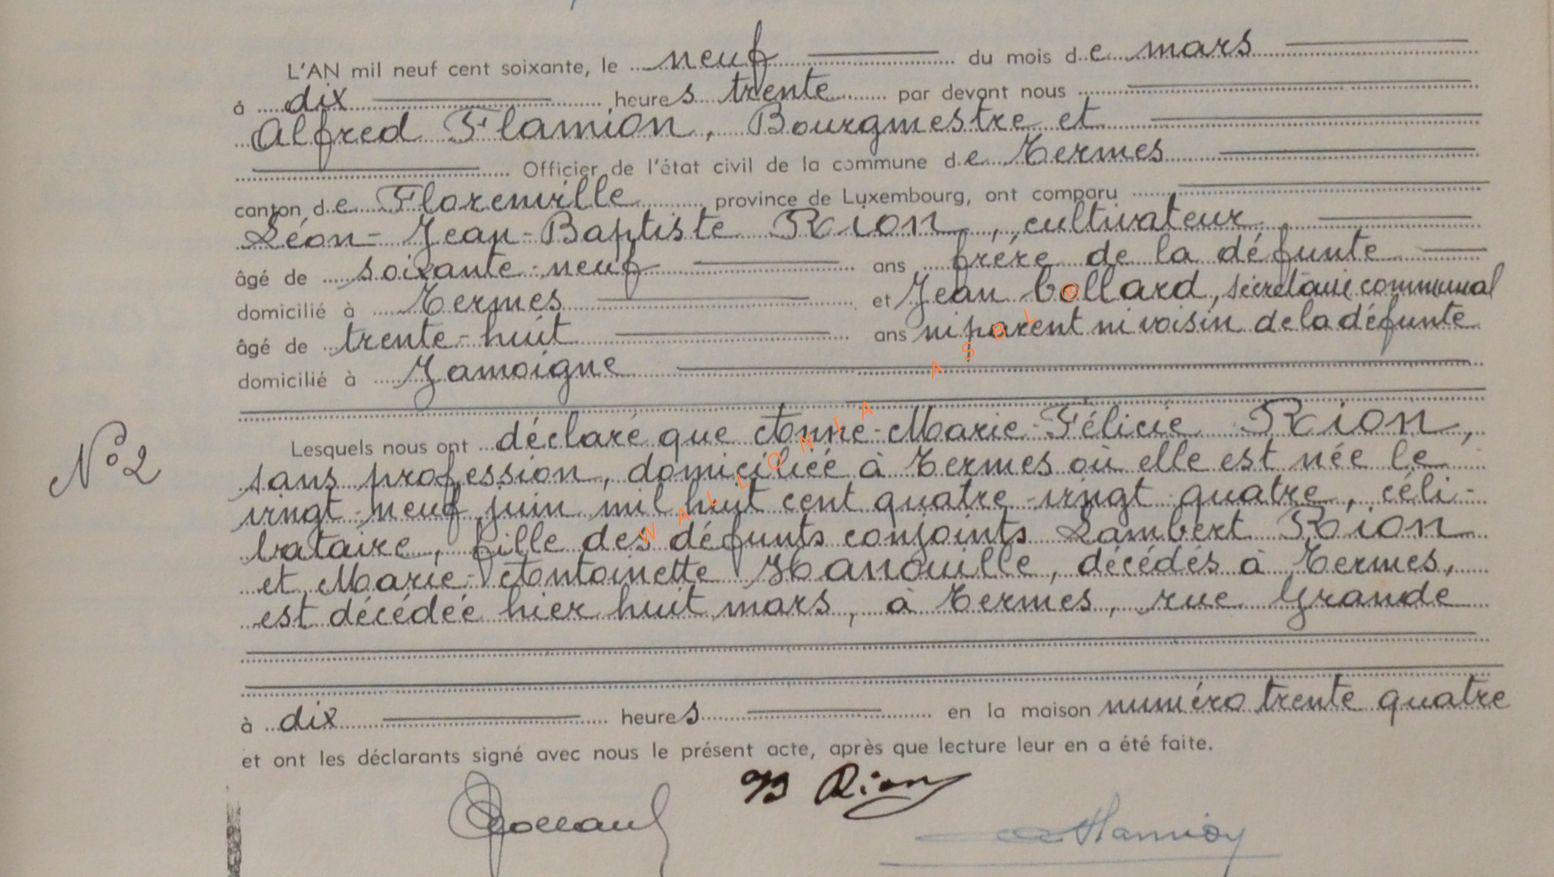 L'AN mil neuf cent soixante, le neuf du mois de mars
à dix heures trente par devant nous
Alfred Flamion, Bourgmestre et
Officier de l'état civil de la commune de Termes
canton de Florenville, province de Luxembourg, ont comparu
Léon-Jean-Baptiste RION, cultivateur,
âgé de soixante-neuf ans frère de la défunte
domicilié à Termes et Jean Collard, secrétaire communal
âgé de trente-huit ans ni parent ni voisin de la défunte
domicilié à Jamoigne
Lesquels nous ont déclaré que Anne-Marie-Félicie RION,
N° 2
sans profession, domiciliée à Termes où elle est née le
vingt-neuf juin mil huit cent quatre-vingt-quatre, céli-
bataire, fille des défunts conjoints Lambert RION
et Marie-Antoinette Hanouille, décédés à Termes,
est décédée hier huit mars, à Termes, rue Grande
à dix heures en la maison numéro trente quatre
et ont les déclarants signé avec nous le présent acte, après que lecture leur en a été faite.
JCollard JB Rion AFlamion
WALLONIA ASBL